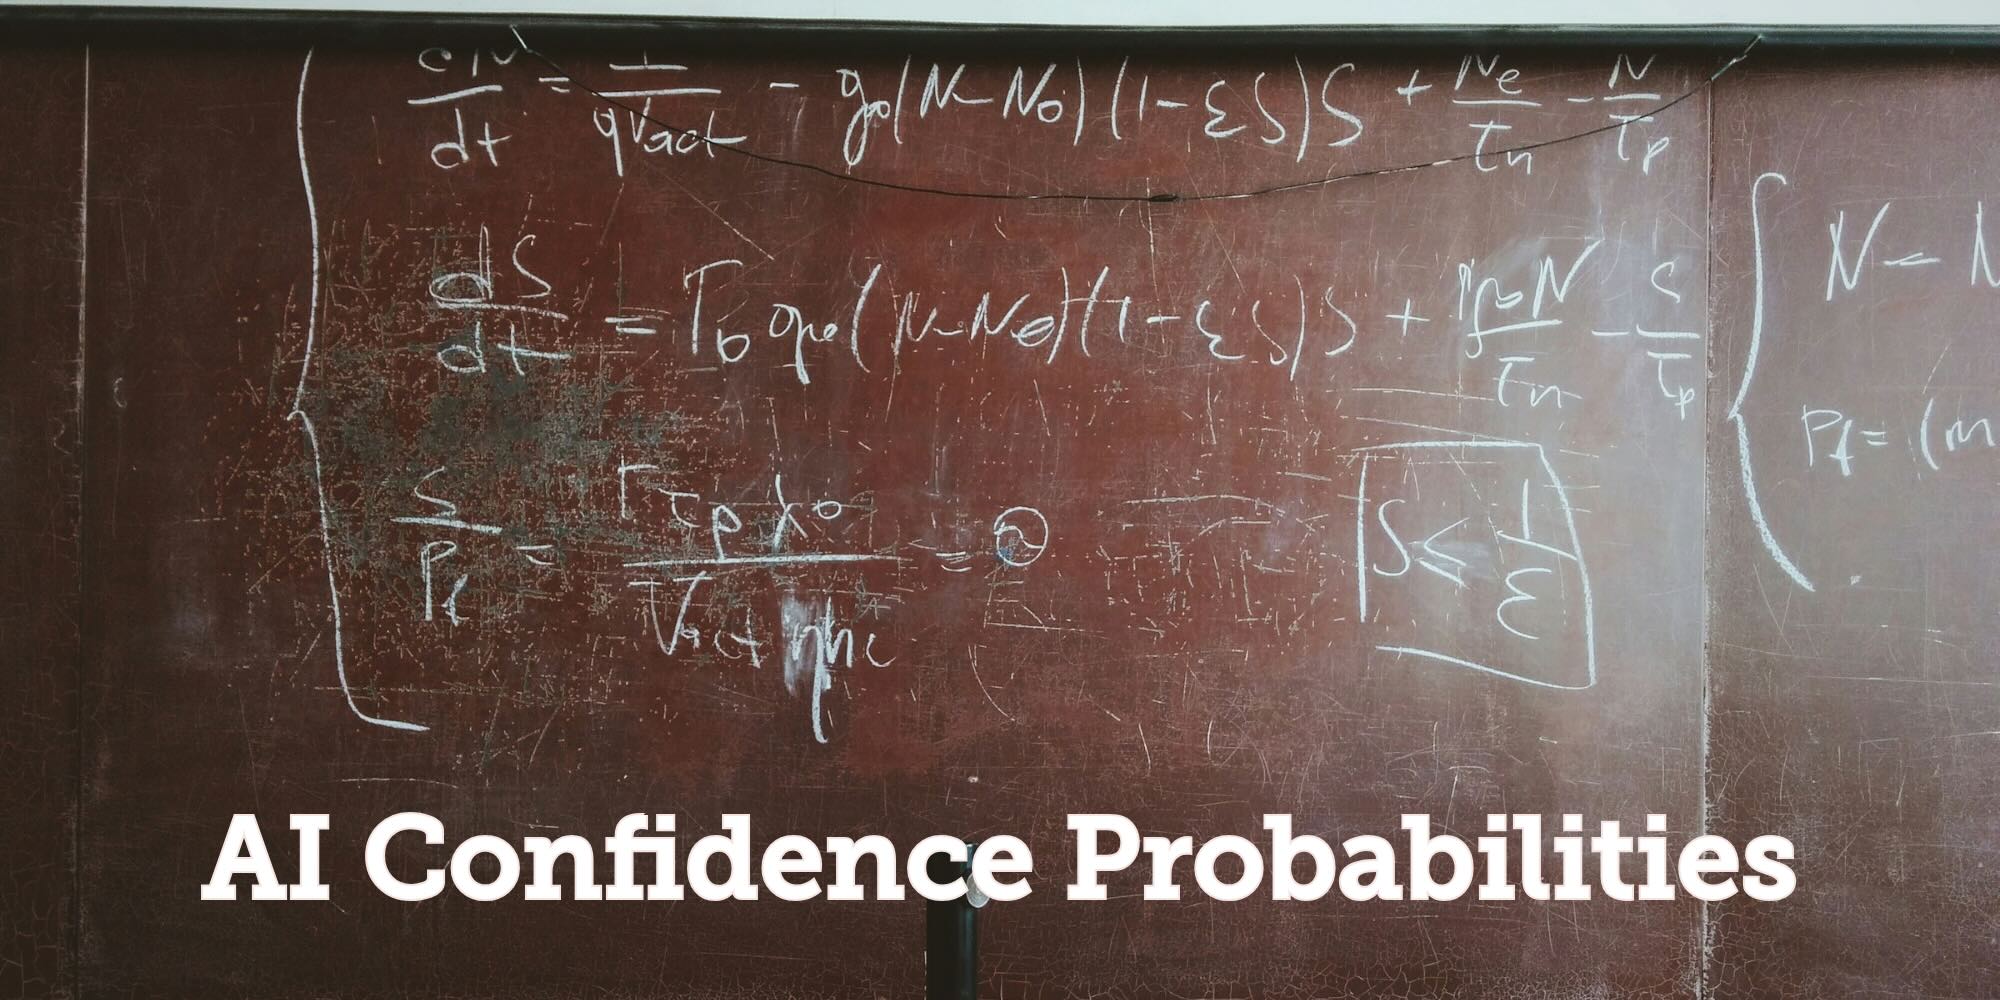 dN/dt = I/qVact - g0(N-N0)(1-εS)S + Ne/τn - N/τp
dS/dt = Γ0 g0(N-N0)(1-εS)S + N/τn - S/τp
N - N
S/Pf = Γτpλ0/Vactηhc =
S ≤ 1/ε
Pf = (m
AI Confidence Probabilities